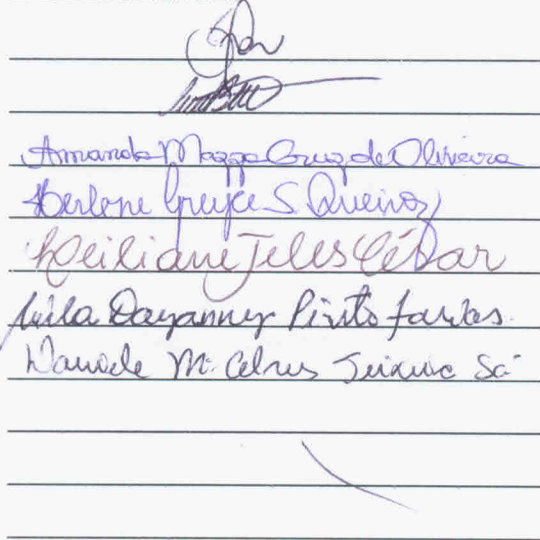 Amanda Mazza Cruz de Oliveira
Herlene Greyce S. Queiroz
Heiliane Teles César
Leila Dayanny Pinto Farias
Daniele M. Teixeira Sá